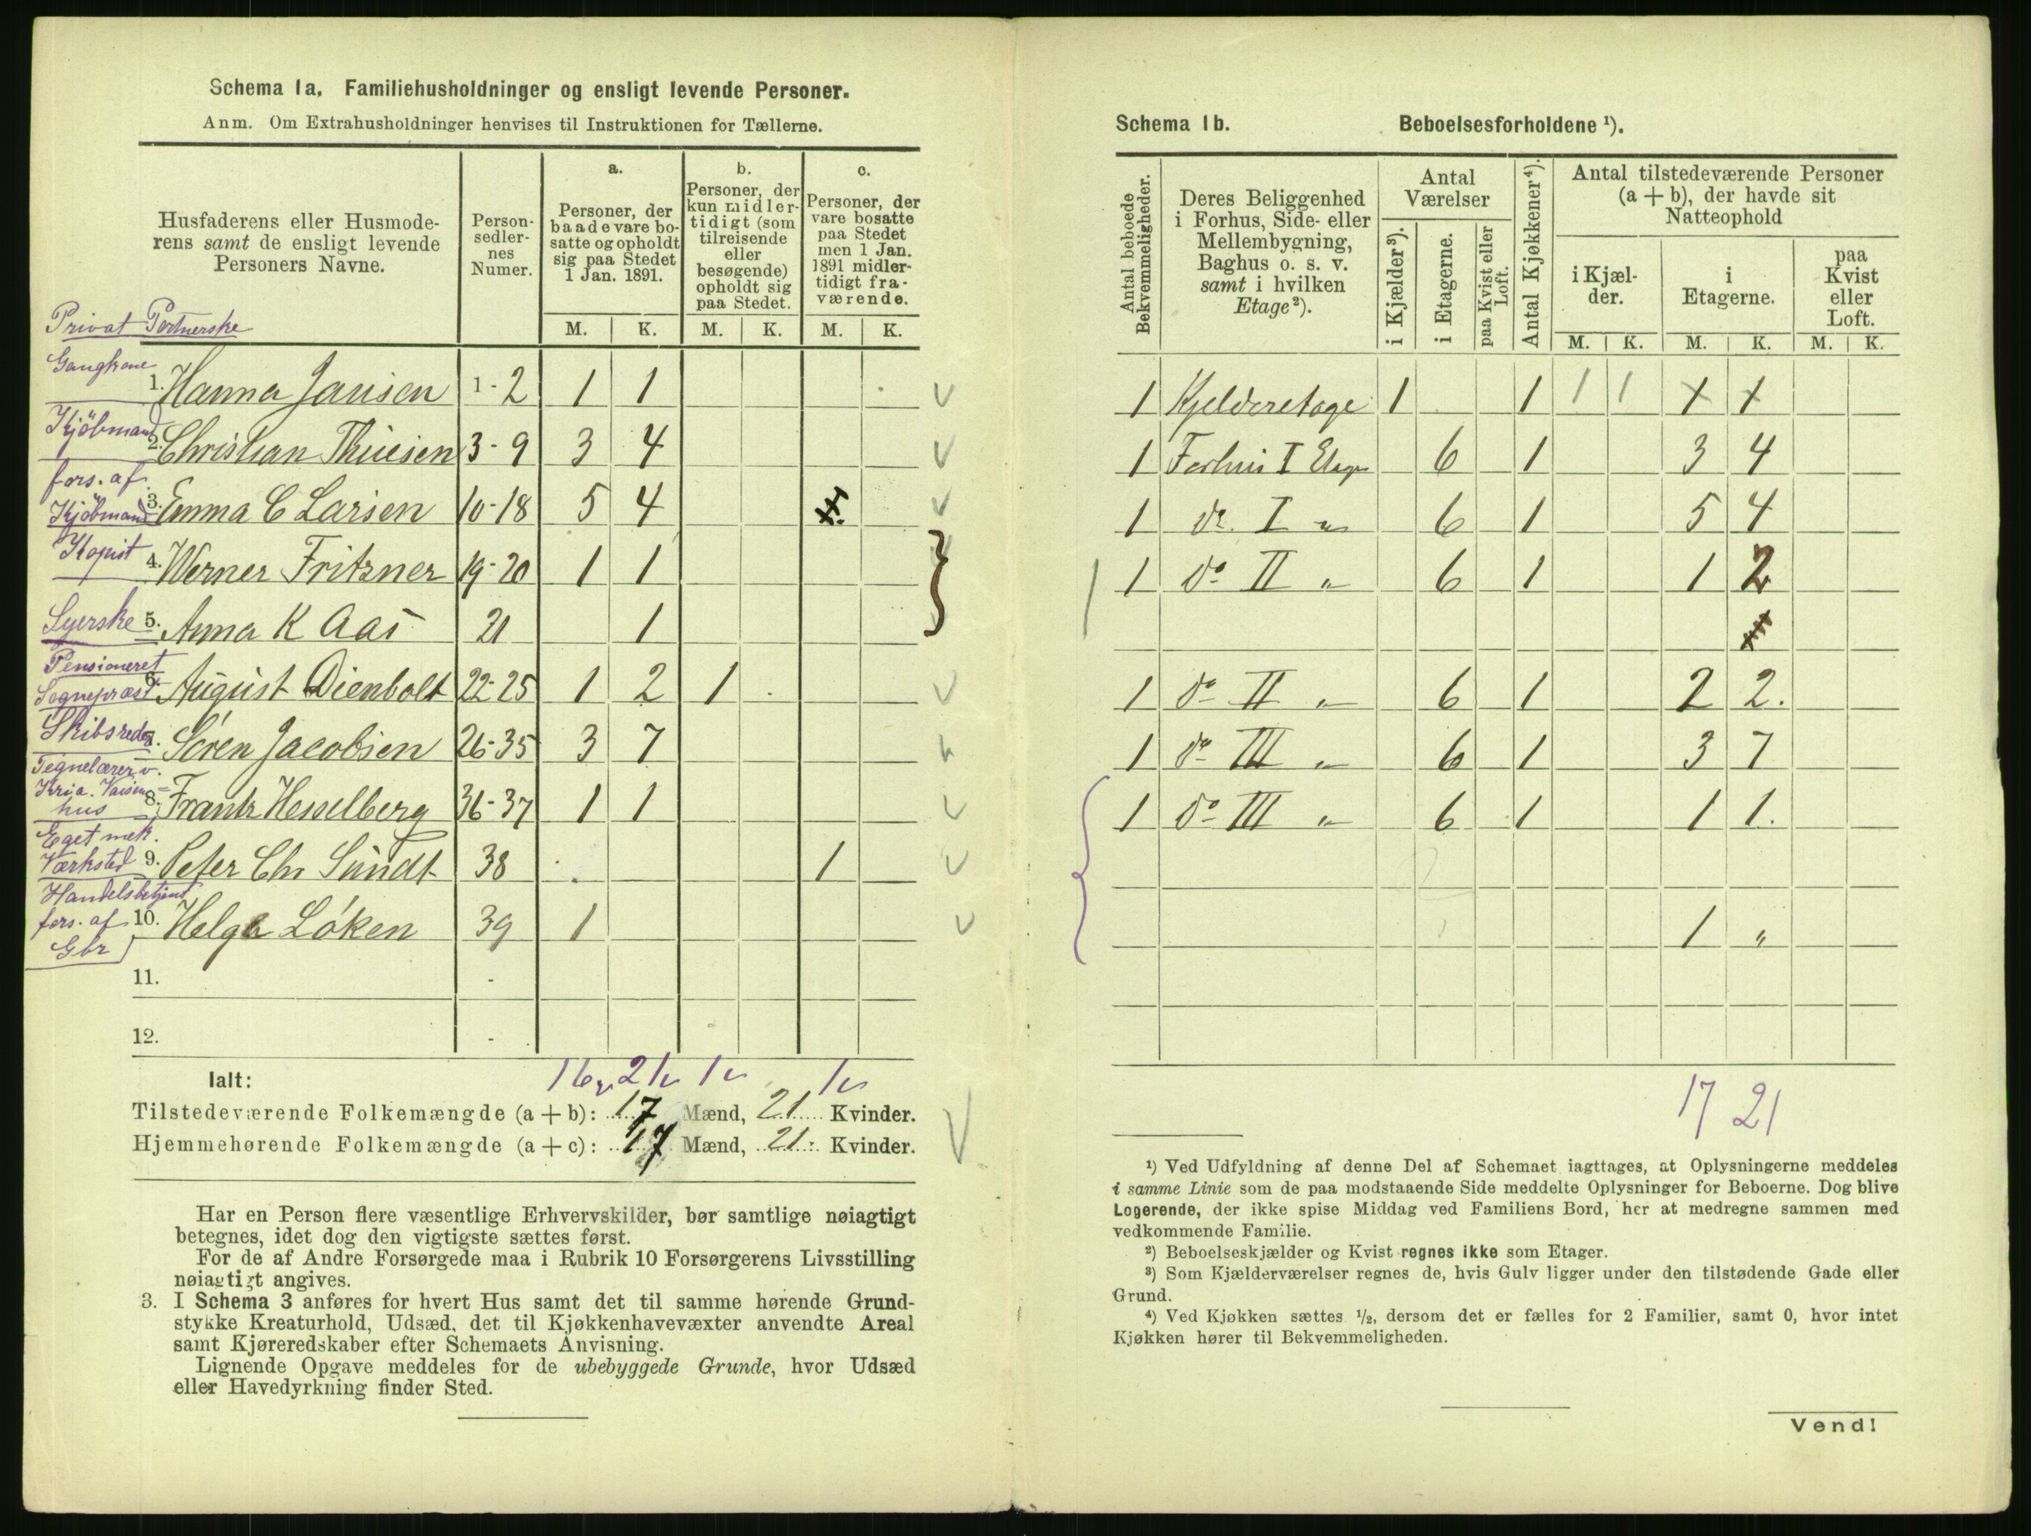 Schema 1a. Familiehusholdninger og ensligt levende Personer.
Anm. Om Extrahusholdninger henvises til Instruktionen for Tællerne.
Husfaderens eller Husmode-
rens samt de ensligt levende
Personers Navne.
Person-
sedler-
nes
Numer.
a.
Personer, der
baade vare bo-
satte og opholdt
sig paa Stedet
1 Jan. 1891.
b.
Personer, der
kun midler-
tidigt (som
tilreisende
eller
besøgende)
opholdt sig
paa Stedet.
c.
Personer, der
vare bosatte
paa Stedet
men 1 Jan.
1891 midler-
tidigt fra-
værende.
M. K. M. K. M. K.
Privat Portnerske
Gangkone
1. Hanna Jansen 1-2 1 1
Kjöbmand
2. Christian Thiesen 3-9 3 4
fors. af
Kjöbmand
3. Emma C Larsen 10-18 5 4
Kopist
4. Werner Fritzner 19-20 1 1
Syerske
5. Anna K Aas 21 1
Pensioneret
Sognepræst
6. August Dienbolt 22-25 1 2 1
Skibsreder
7. Sören Jacobsen 26-35 3 7
Tegnelærer v.
Kria. Vaisen=
hus
8. Frantz Hesselberg 36-37 1 1
Eget mek.
Værksted
9. Peter Chr Sundt 38 1
Handelsbetjent
fors. af
Gbr
10. Helge Löken 39 1
11.
12.
16 21 1 1
Ialt:
Tilstedeværende Folkemængde (a + b): 17 Mænd, 21 Kvinder.
Hjemmehørende Folkemængde (a + c): 17 Mænd, 21 Kvinder.
Har en Person flere væsentlige Erhvervskilder, bør samtlige nøiagtigt
betegnes, idet dog den vigtigste sættes først.
For de af Andre Forsørgede maa i Rubrik 10 Forsørgerens Livsstilling
nøiagtigt angives.
3. I Schema 3 anføres for hvert Hus samt det til samme hørende Grund-
stykke Kreaturhold, Udsæd, det til Kjøkkenhavevæxter anvendte Areal
samt Kjøreredskaber efter Schemaets Anvisning.
Lignende Opgave meddeles for de ubebyggede Grunde, hvor Udsæd
eller Havedyrkning finder Sted.
Schema 1b. Beboelsesforholdene ¹).
Antal beboede
Bekvemmeligheder.
Deres Beliggenhed
i Forhus, Side- eller
Mellembygning,
Baghus o. s. v.
samt i hvilken
Etage²).
Antal
Værelser
i Kjælder³).
i Etagerne.
paa Kvist eller
Loft.
Antal Kjøkkener⁴).
Antal tilstedeværende Personer
(a + b), der havde sit
Natteophold
i Kjæl-
der.
i
Etagerne.
paa
Kvist
eller
Loft.
M. K. M. K. M. K.
1 Kjelderetage 1 1 1 1 1 1
1 Forhus I Etage 6 1 3 4
1 do. I " 6 1 5 4
1 do II " 6 1 1 2
1 do II " 6 1 2 2.
1 do III " 6 1 3 7
1 do III " 6 1 1 1.
1 "
17 21
¹) Ved Udfyldning af denne Del af Schemaet iagttages, at Oplysningerne meddeles
i samme Linie som de paa modstaaende Side meddelte Oplysninger for Beboerne. Dog blive
Logerende, der ikke spise Middag ved Familiens Bord, her at medregne sammen med
vedkommende Familie.
²) Beboelseskjælder og Kvist regnes ikke som Etager.
³) Som Kjælderværelser regnes de, hvis Gulv ligger under den tilstødende Gade eller
Grund.
⁴) Ved Kjøkken sættes ½, dersom det er fælles for 2 Familier, samt 0, hvor intet
Kjøkken hører til Bekvemmeligheden.
Vend!